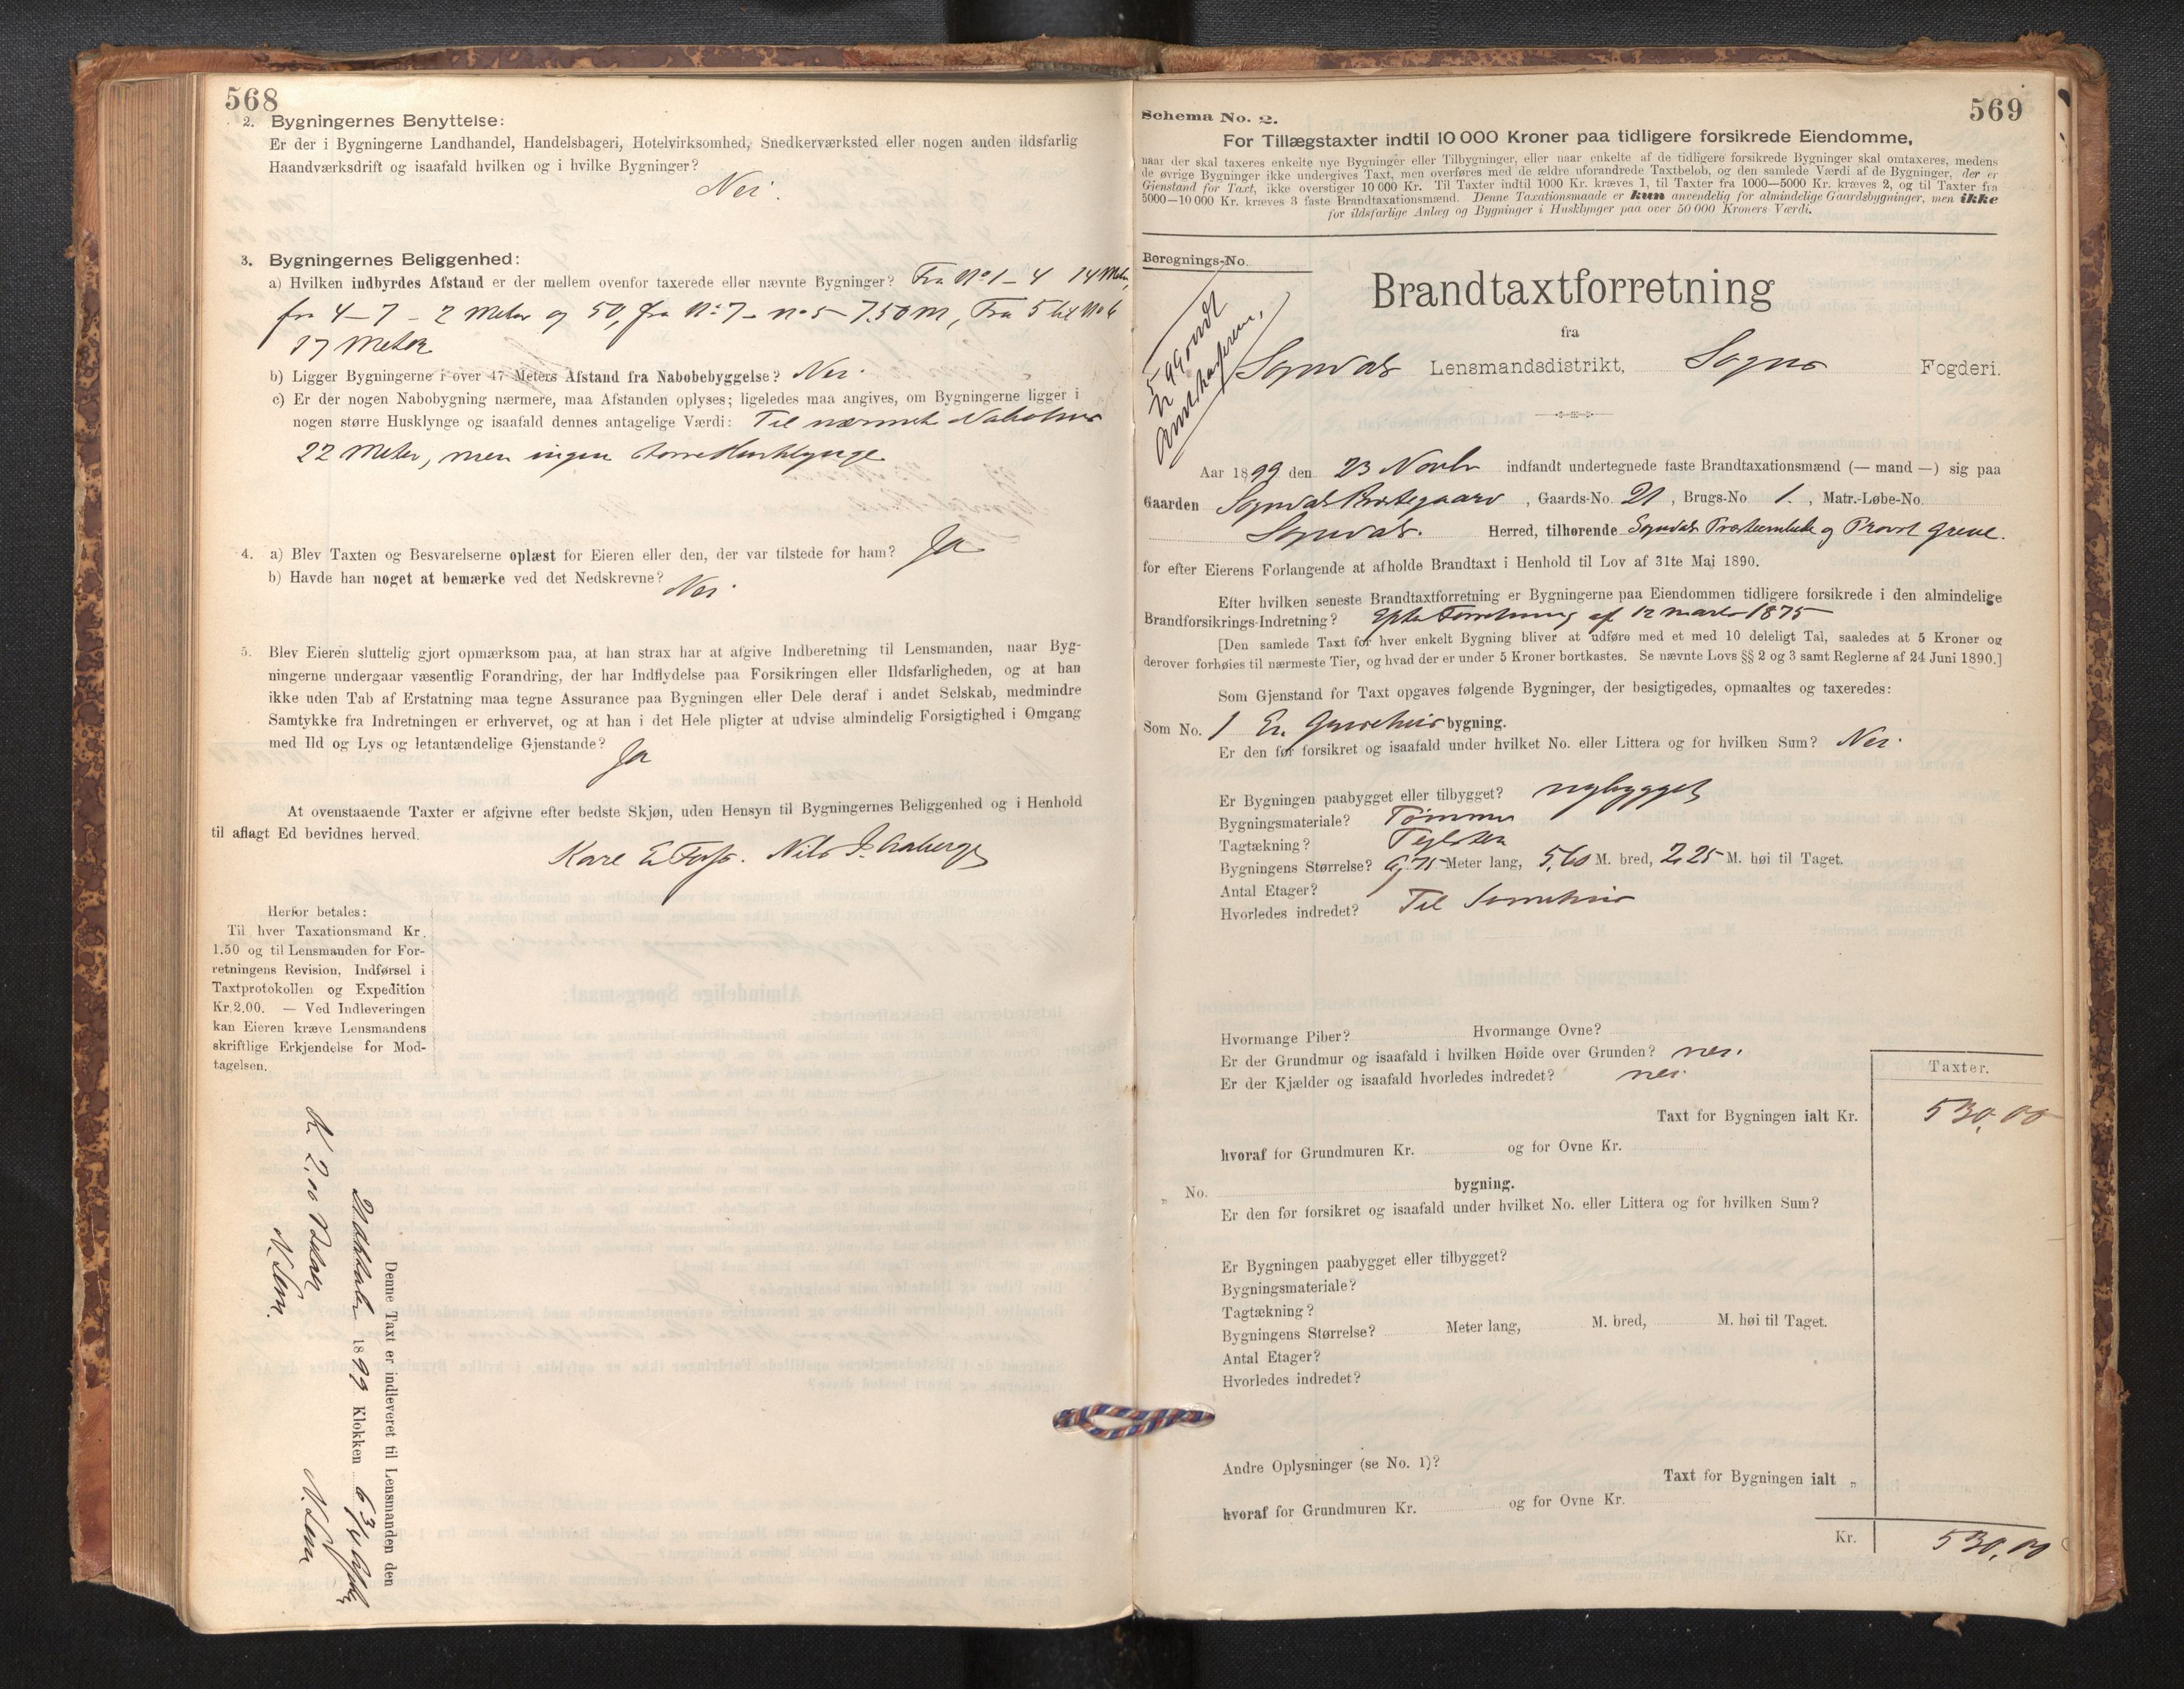 568
2. Bygningernes Benyttelse:
Er der i Bygningerne Landhandel, Handelsbageri, Hotelvirksomhed, Snedkerværksted eller nogen anden ildsfarlig
Haandværksdrift og isaafald hvilken og i hvilke Bygninger?
Nei.
3. Bygningernes Beliggenhed:
a) Hvilken indbyrdes Afstand er der mellem ovenfor taxerede eller nævnte Bygninger? Fra No 1 - 4 14 Meter,
fra 4 - 7 - 2 Meter og 50, fra No 7 - no 5 - 7.50 m, Fra 5 til No 6
17 Meter
b) Ligger Bygningerne i over 47 Meters Afstand fra Nabobebyggelse? Nei.
c) Er der nogen Nabobygning nærmere, maa Afstanden oplyses; ligeledes maa angives, om Bygningerne ligger i
nogen større Husklynge og isaafald dennes antagelige Værdi: Til nærmeste Nabohus
22 Meter, men ingen større Husklynge
4. a) Blev Taxten og Besvarelserne oplæst for Eieren eller den, der var tilstede for ham? Ja
b) Havde han noget at bemærke ved det Nedskrevne? Nei.
5. Blev Eieren sluttelig gjort opmærksom paa, at han strax har at afgive Indberetning til Lensmanden, naar Byg-
ningerne undergaar væsentlig Forandring, der har Indflydelse paa Forsikringen eller Ildsfarligheden, og at han
ikke uden Tab af Erstatning maa tegne Assurance paa Bygningen eller Dele deraf i andet Selskab, medmindre
Samtykke fra Indretningen er erhvervet, og at han i det Hele pligter at udvise almindelig Forsigtighed i Omgang
med Ild og Lys og letantændelige Gjenstande? Ja
At ovenstaaende Taxter er afgivne efter bedste Skjøn, uden Hensyn til Bygningernes Beliggenhed og i Henhold
til aflagt Ed bevidnes herved.
Nils
Herfor betales:
Til hver Taxationsmand Kr.
1.50 og til Lensmanden for For-
retningens Revision, Indførsel i
Taxtprotokollen og Expedition
Kr. 2.00. — Ved Indleveringen
kan Eieren kræve Lensmandens
skriftlige Erkjendelse for Mod-
tagelsen.
Denne Taxt er indleveret til Lensmanden den
1899 Klokken 6 3/4
Kr 2,00 Betalt
569
Schema No. 2.
For Tillægstaxter indtil 10 000 Kroner paa tidligere forsikrede Eiendomme,
naar der skal taxeres enkelte nye Bygninger eller Tilbygninger, eller naar enkelte af de tidligere forsikrede Bygninger skal omtaxeres, medens
de øvrige Bygninger ikke undergives Taxt, men overføres med de ældre uforandrede Taxtbeløb, og den samlede Værdi af de Bygninger, der er
Gjenstand for Taxt, ikke overstiger 10 000 Kr. Til Taxter indtil 1000 Kr. kræves 1, til Taxter fra 1000—5000 Kr. kræves 2, og til Taxter fra
5000—10 000 Kr. kræves 3 faste Brandtaxationsmænd. Denne Taxationsmaade er kun anvendelig for almindelige Gaardsbygninger, men ikke
for ildsfarlige Anlæg og Bygninger i Husklynger paa over 50 000 Kroners Værdi.
Beregnings-No.
Brandtaxtforretning
fra
Sogndals Lensmandsdistrikt, Sogns Fogderi.
Aar 1899 den 23 Novbr indfandt undertegnede faste Brandtaxationsmænd (— mand —) sig paa
Gaarden Sogndals Prestegaard, Gaards-No. 21, Brugs-No 1., Matr.-Løbe-No.
Sogndals. Herred, tilhørende Sogndals Præsteembede og Provst Greve.
for efter Eierens Forlangende at afholde Brandtaxt i Henhold til Lov af 31te Mai 1890.
Efter hvilken seneste Brandtaxtforretning er Bygningerne paa Eiendommen tidligere forsikrede i den almindelige
Brandforsikrings-Indretning? Efter Forretning af 12 marts 1875
[Den samlede Taxt for hver enkelt Bygning bliver at udføre med et med 10 deleligt Tal, saaledes at 5 Kroner og
derover forhøies til nærmeste Tier, og hvad der er under 5 Kroner bortkastes. Se nævnte Lovs §§ 2 og 3 samt Reglerne af 24 Juni 1890.]
Som Gjenstand for Taxt opgaves følgende Bygninger, der besigtigedes, opmaaltes og taxeredes:
Som No. 1 En Grisehus bygning.
Er den før forsikret og isaafald under hvilket No. eller Littera og for hvilken Sum? Nei.
Er Bygningen paabygget eller tilbygget? nybygget
Bygningsmateriale? Tømmer
Tagtækning? Teglsten
Bygningens Størrelse? 9,75 Meter lang, 5,60 M. bred, 2,25 M. høi til Taget.
Antal Etager?
Hvorledes indredet? Til
Hvormange Piber? Hvormange Ovne?
Er der Grundmur og isaafald i hvilken Høide over Grunden? nei.
Er der Kjælder og isaafald hvorledes indredet? nei.
Taxter.
Taxt for Bygningen ialt Kr. 530,00
hvoraf for Grundmuren Kr. og for Ovne Kr.
„ No. bygning.
Er den før forsikret og isaafald under hvilket No. eller Littera og for hvilken Sum?
Er Bygningen paabygget eller tilbygget?
Bygningsmateriale?
Tagtækning?
Bygningens Størrelse? Meter lang, M. bred, M. høi til Taget.
Antal Etager?
Hvorledes indredet?
Andre Oplysninger (se No. 1)?
Taxt for Bygningen ialt „
hvoraf for Grundmuren Kr. og for Ovne Kr.
Kr. 530,00